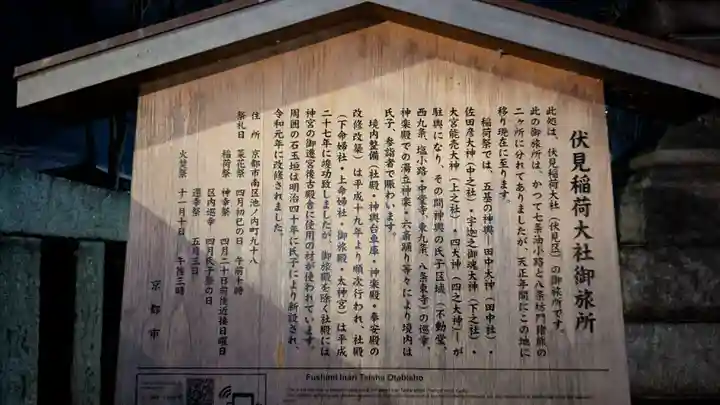 伏見稲荷大社御旅所
此処は、伏見稲荷大社(伏見区)の御旅所です。
此の御旅所は、かつて七条油小路と八条坊門猪熊の
二ヶ所に分れてありましたが、天正年間にこの地に
移り現在に至ります。
稲荷祭では、五基の神輿―田中大神(田中社)・
佐田彦大神(中之社)・宇迦之御魂大神(下之社)・
大宮能売大神(上之社)・四大神(四之大神)―が
駐輿になり、その間神輿の氏子区域(不動堂、
西九条、塩小路・中堂寺、東九条、八条東寺)の巡幸、
神楽殿での湯立神楽・六斎踊り等々により境内は
氏子、参詣者で賑わいます。
境内整備(社殿・神輿台車庫・神楽殿・奉安殿の
改修改築)は平成十九年より順次行われ、社殿
(下命婦社・上命婦社・御旅殿・大神宮)は平成
二十七年に竣功致しましたが、御旅殿を除く社殿には
神宮の御遷宮後古殿舎に使用の材が使われています。
周囲の石玉垣は明治四十年に氏子により新設され、
令和元年に改修されました。
住所 京都市南区池ノ内町九十八
祭礼日 菜花祭 四月初巳の日 午前十時
稲荷祭 神幸祭 四月二十日前後近接日曜日
区内巡幸 四月氏子祭の日
還幸祭 五月三日
火焚祭 十一月十日 午後三時
京都市
Fushimi Inari Taisha Otabisho